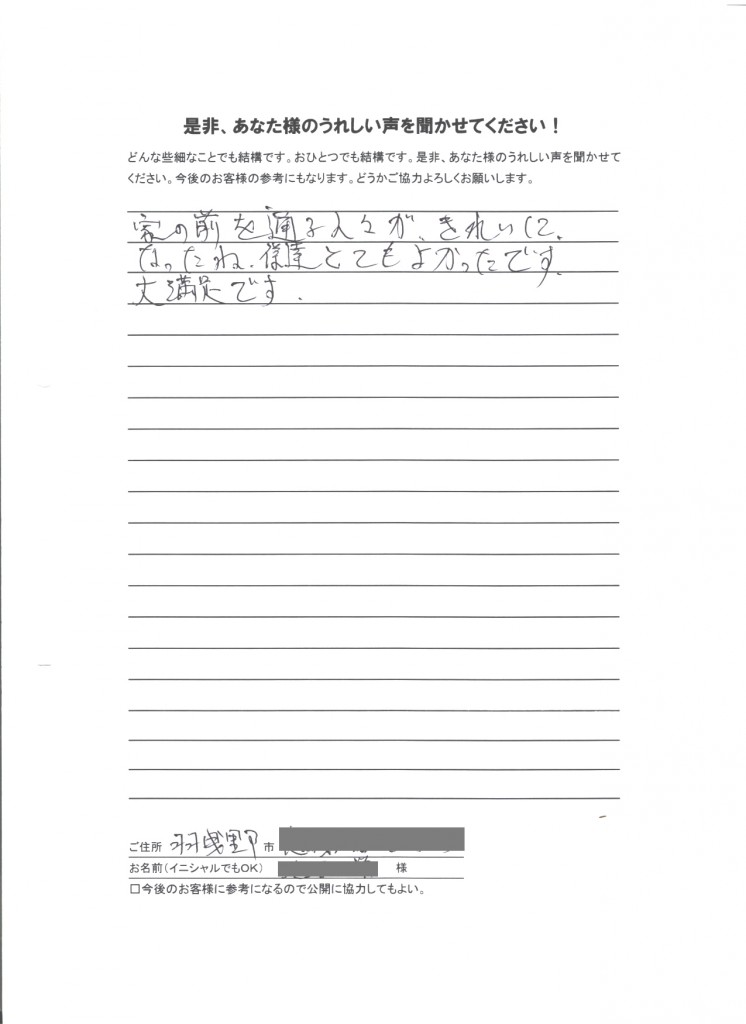 是非、あなた様のうれしい声を聞かせてください！
どんな些細なことでも結構です。おひとつでも結構です。是非、あなた様のうれしい声を聞かせて
ください。今後のお客様の参考にもなります。どうかご協力よろしくお願いします。
家の前を通る人々が、きれいに、
なったね、僕達とてもよかったです。
大満足です．
ご住所 羽曳野市
お名前（イニシャルでもOK） 様
□今後のお客様に参考になるので公開に協力してもよい。